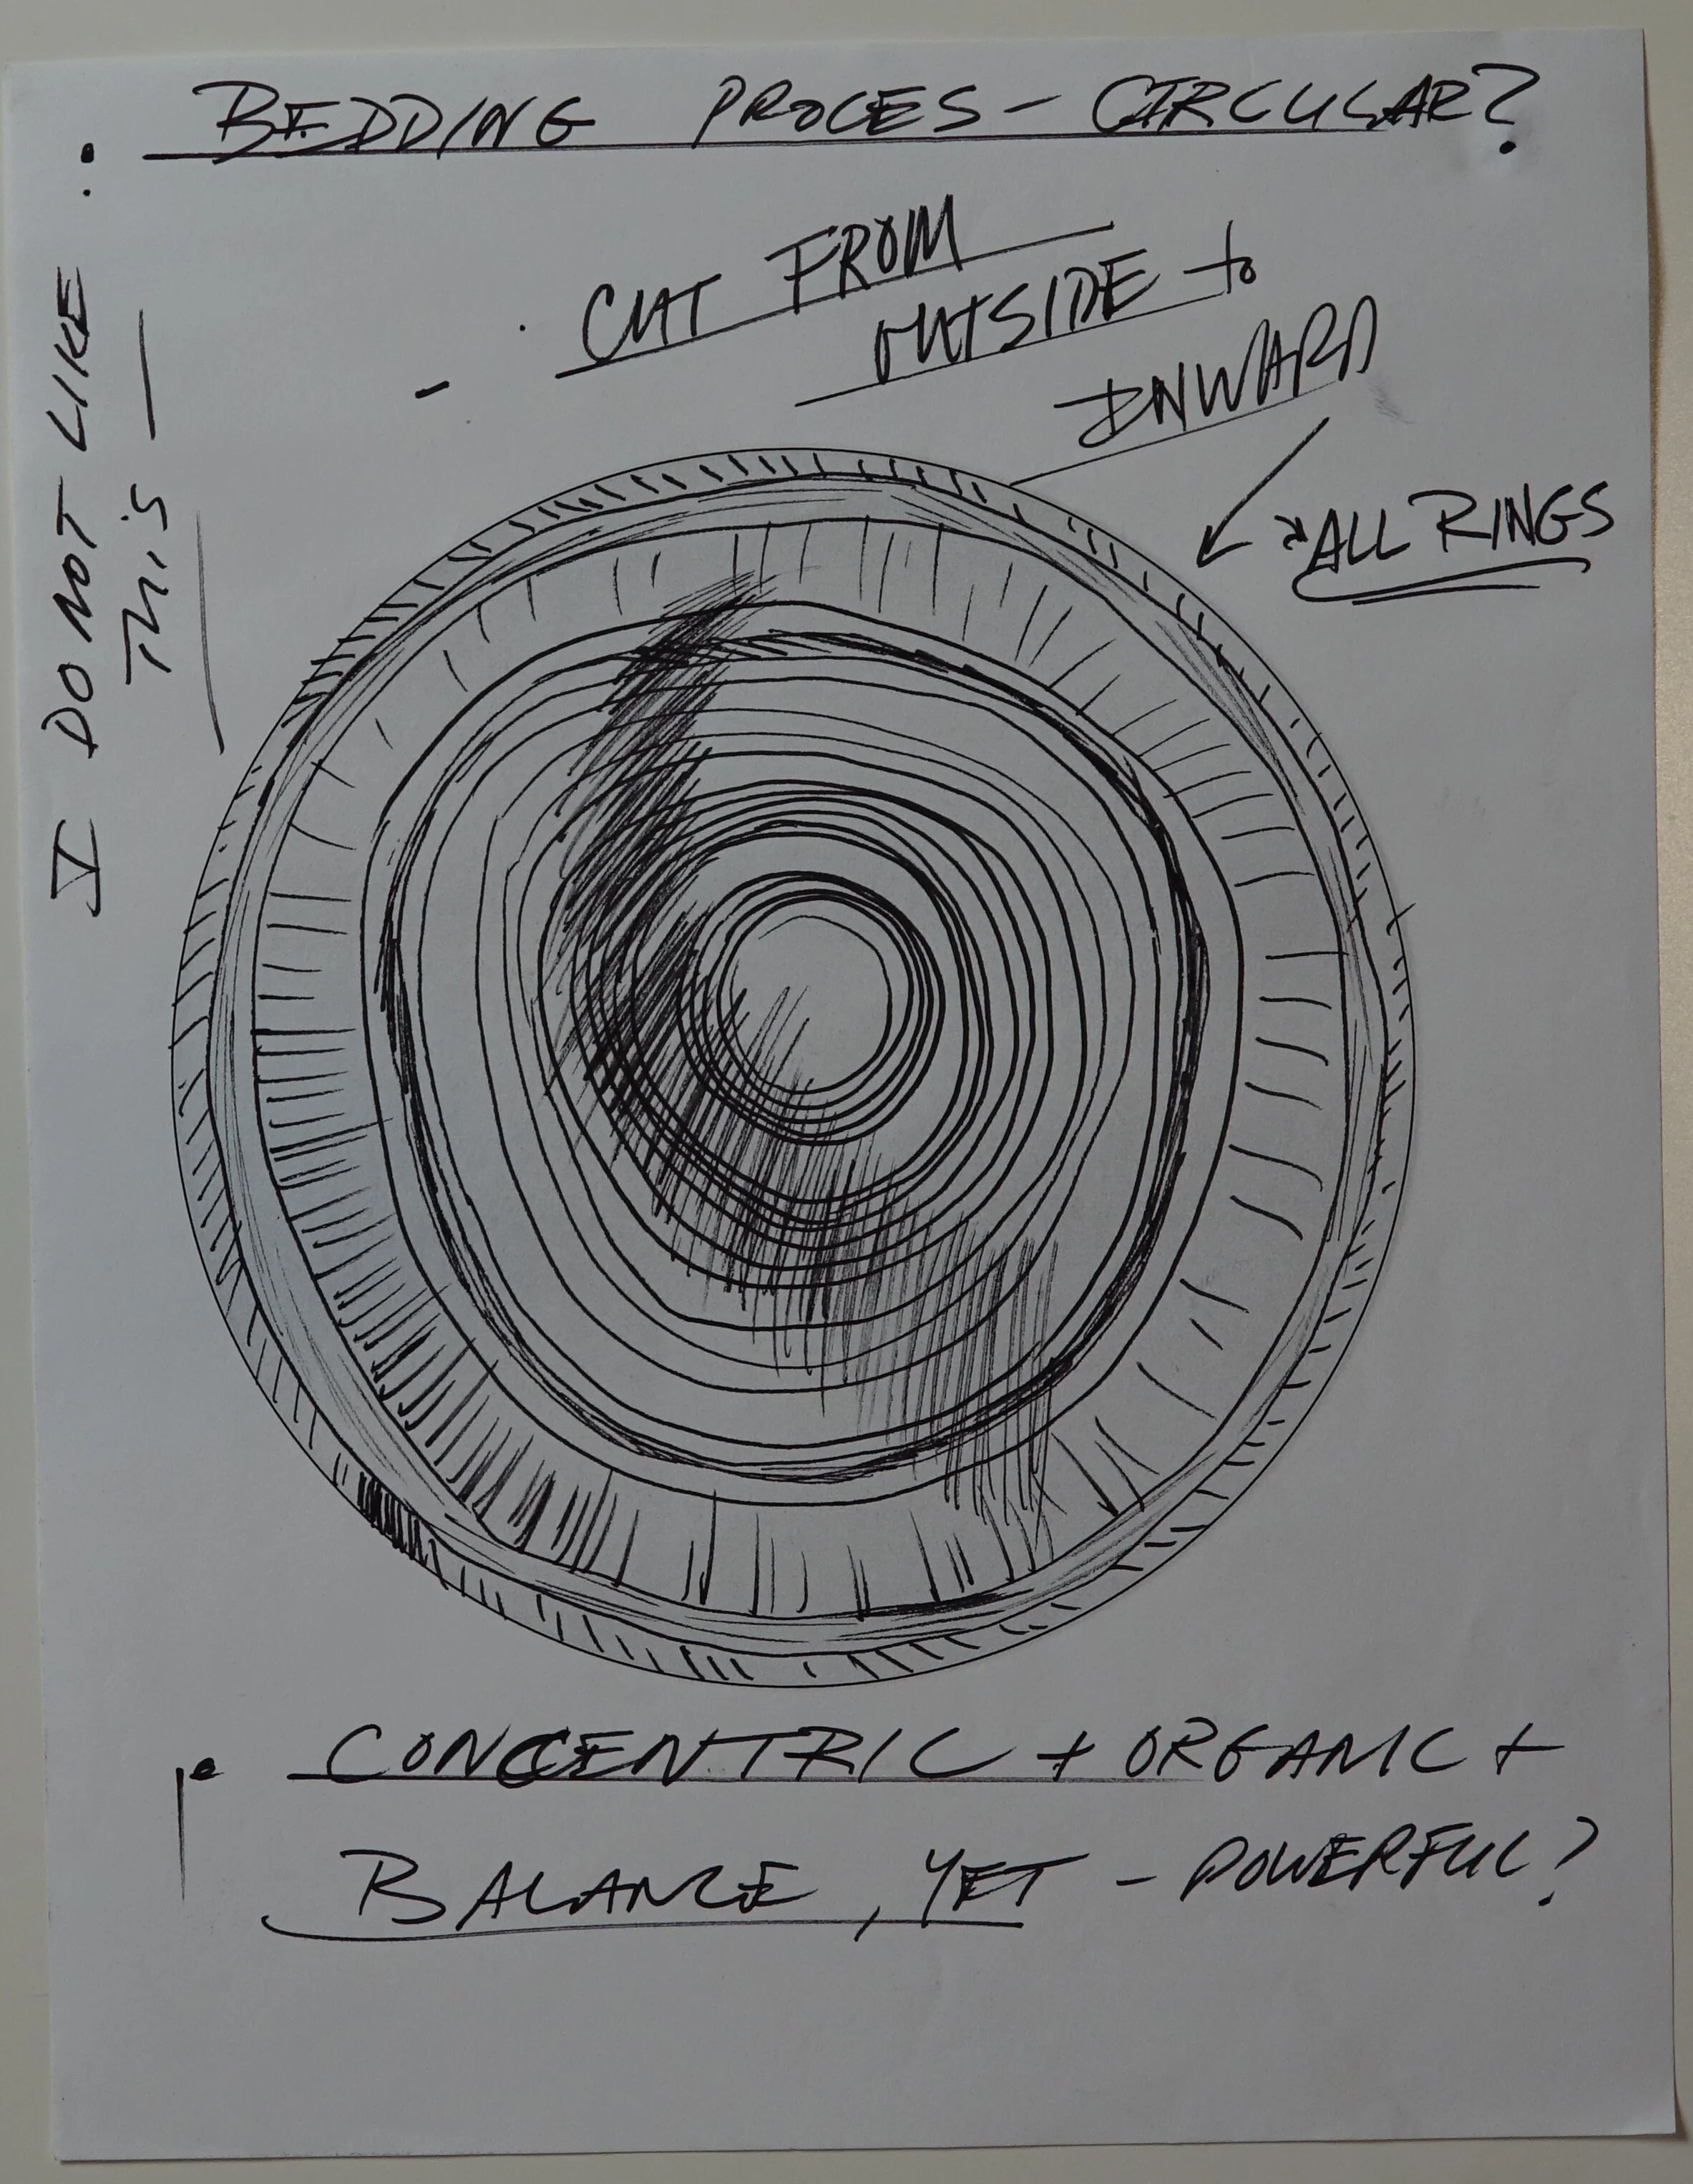 BEDDING PROCES - CIRCULAR?
- CUT FROM
OUTSIDE to
INWARD
ALL RINGS
I DO NOT LIKE
THiS
CONCENTRIC + ORGANIC +
BALANCE, YET - POWERFUL?